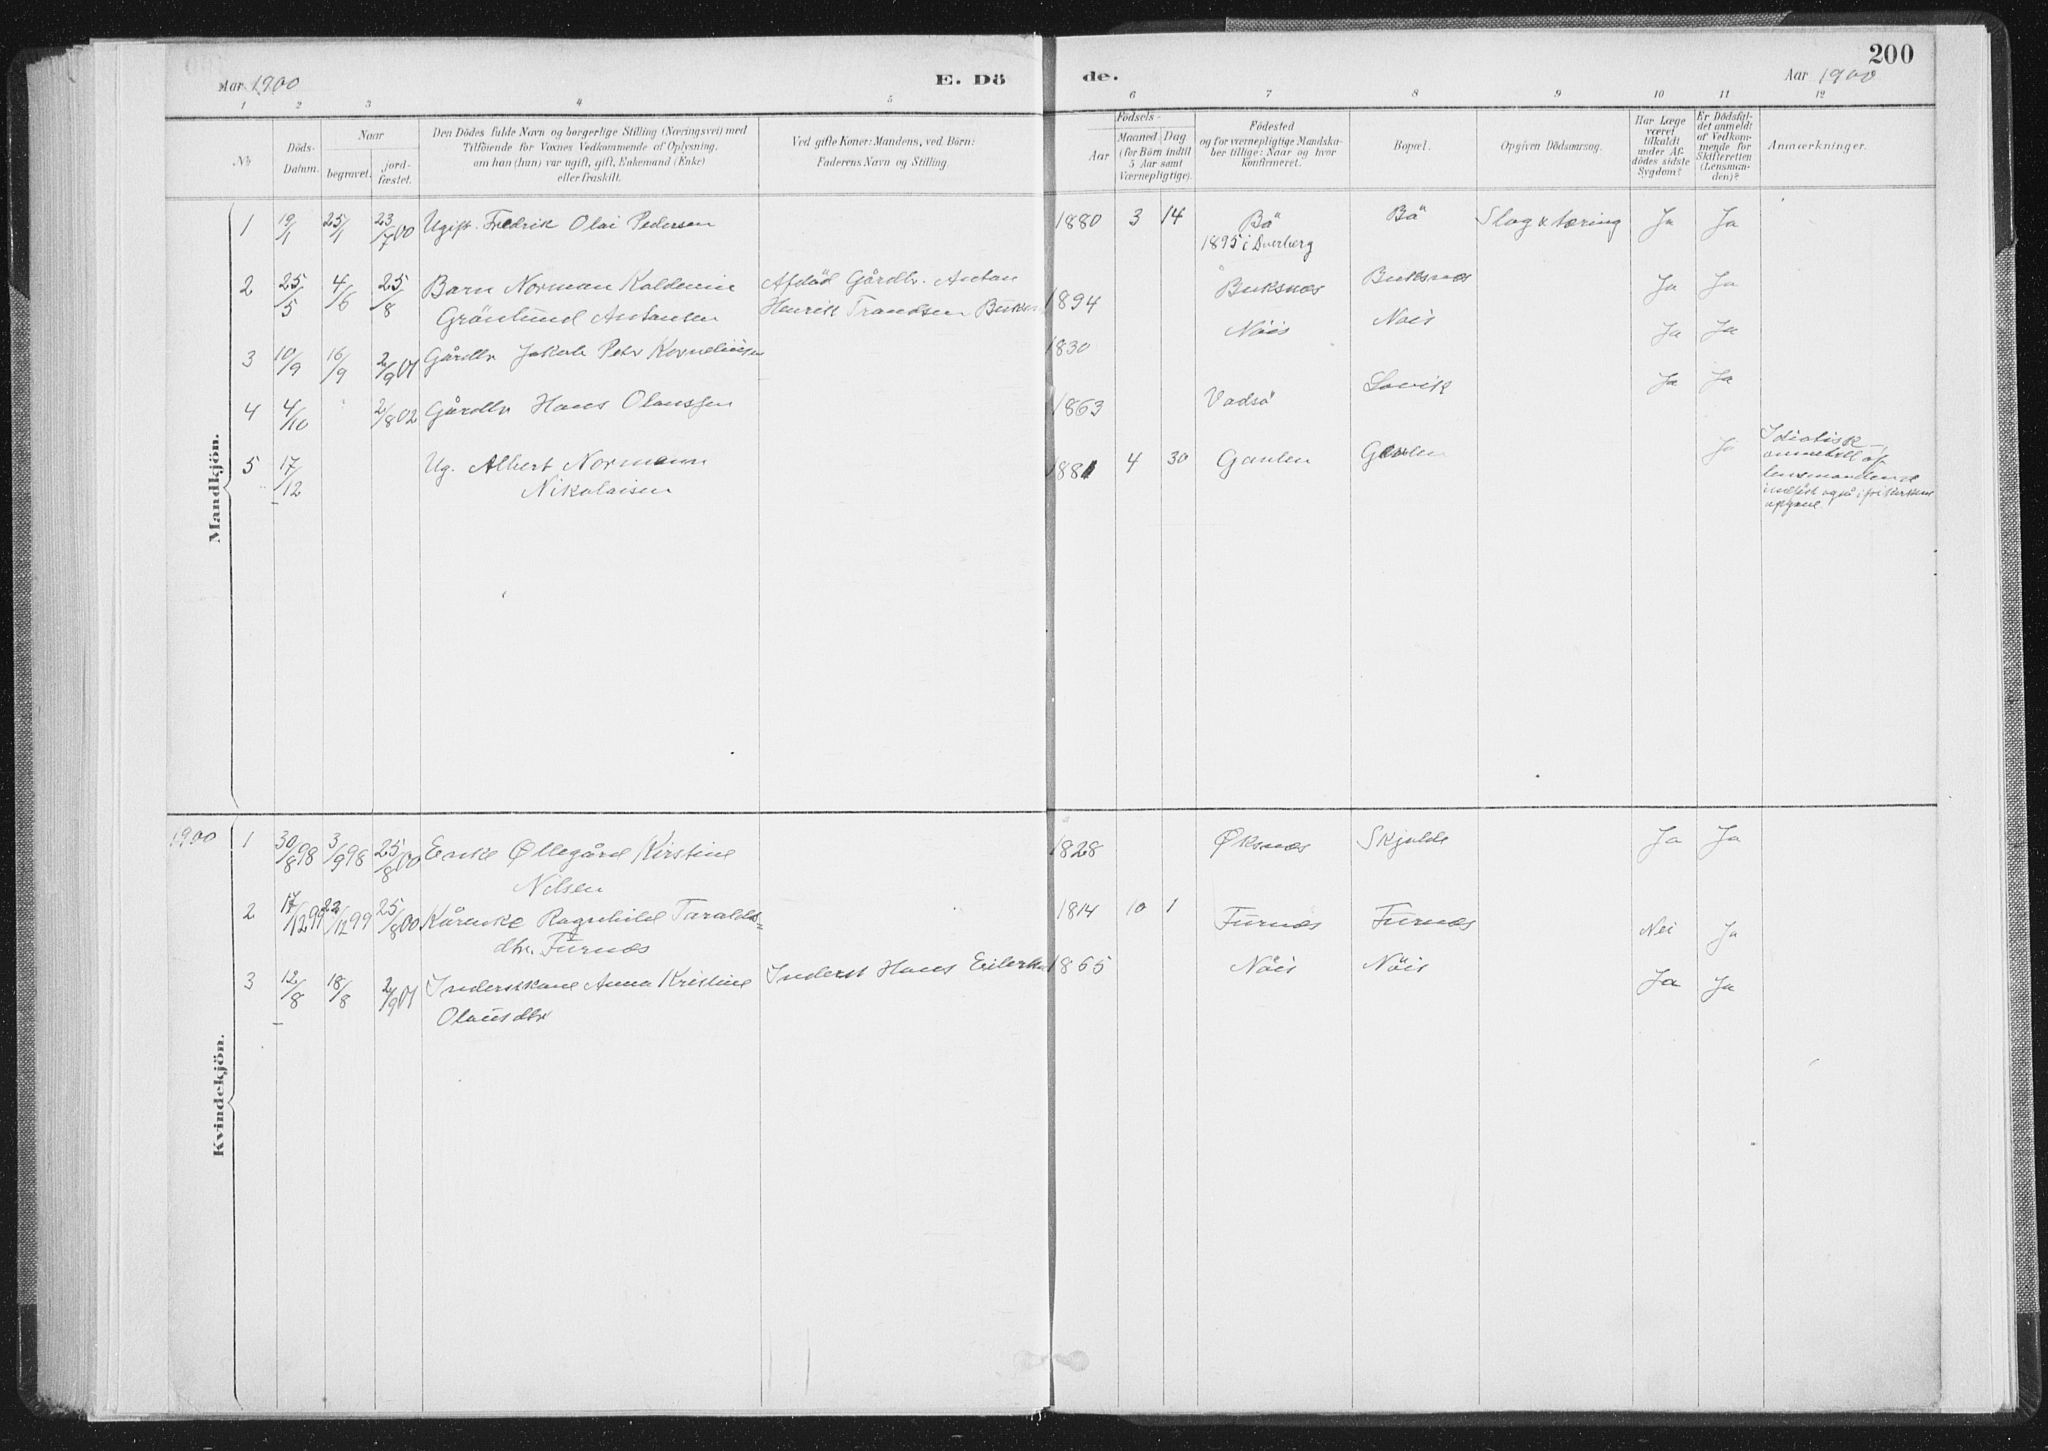 200
Aar 1900
E. Dö
de.
Aar 1900
1 2 3 4 5 6 7 8 9 10 11 12
No.
Döds-
Datum.
Naar
begravet.
jord-
fæstet.
Den Dödes fulde Navn og borgerlige Stilling (Næringsvei) med
Tilföiende for Voxnes Vedkommende af Oplysning,
om han (hun) var ugift, gift, Enkemand (Enke)
eller fraskilt.
Ved gifte Koner: Mandens, ved Börn:
Faderens Navn og Stilling
Födsels-
Aar
Maaned
Dag
(for Börn indtil
5 Aar samt
Værnepligtige).
Födested
og for værnepligtige Mandska-
ber tillige: Naar og hvor
konfirmeret.
Bopæl.
Opgiven Dödsaarsag.
Har Læge
været
tilkaldt
under Af-
dödes sidste
Sygdom?
Er Dödsfal-
det anmeldt
af Vedkom-
mende for
Skifteretten
(Lensman-
den)?
Anmærkninger.
Mandkjön.
1 19/1 25/1 23/7 00 Ugift. Fredrik Olai Pedersen 1880 3 14 Bö Bö Slag & tæring Ja Ja
1895 i Dverberg
2 25/5 4/6 25/8 Barn Norman Kaldemin Afdöd Gårdbr. Antan 1894 Buksnes Buksnes Ja Ja
Grönlund Antansen Henrik Trandsen
3 10/9 16/9 2/9 01 Gårdbr Jakob Peter Korneliusen 1830 Nöis Nois Ja Ja
4 4/10 2/8 02 Gårdbr Hans Olaussen 1863 Vadsö Ja Ja
5 17/12 Ug. Albert Normann 1881 4 30 Gaulen Ja Idiotisk
Nikolaisen
Kvindekjön.
1900 1 30/8 98 3/9 98 25/8 00 Enke Øllegård Kirstine 1828 Øksnes Skjolde Ja Ja
Nilsen
2 17/12 99 22/12 99 25/8 00 Kårenke Ragnhild Taralds= 1814 10 1 Furnes Furnes Nei Ja
dtr. Furnes
3 12/8 18/8 2/9 01 Inderstkone Anna Kristine Inderst Hans 1865 Nöis Nöis Ja Ja
Olausdtr